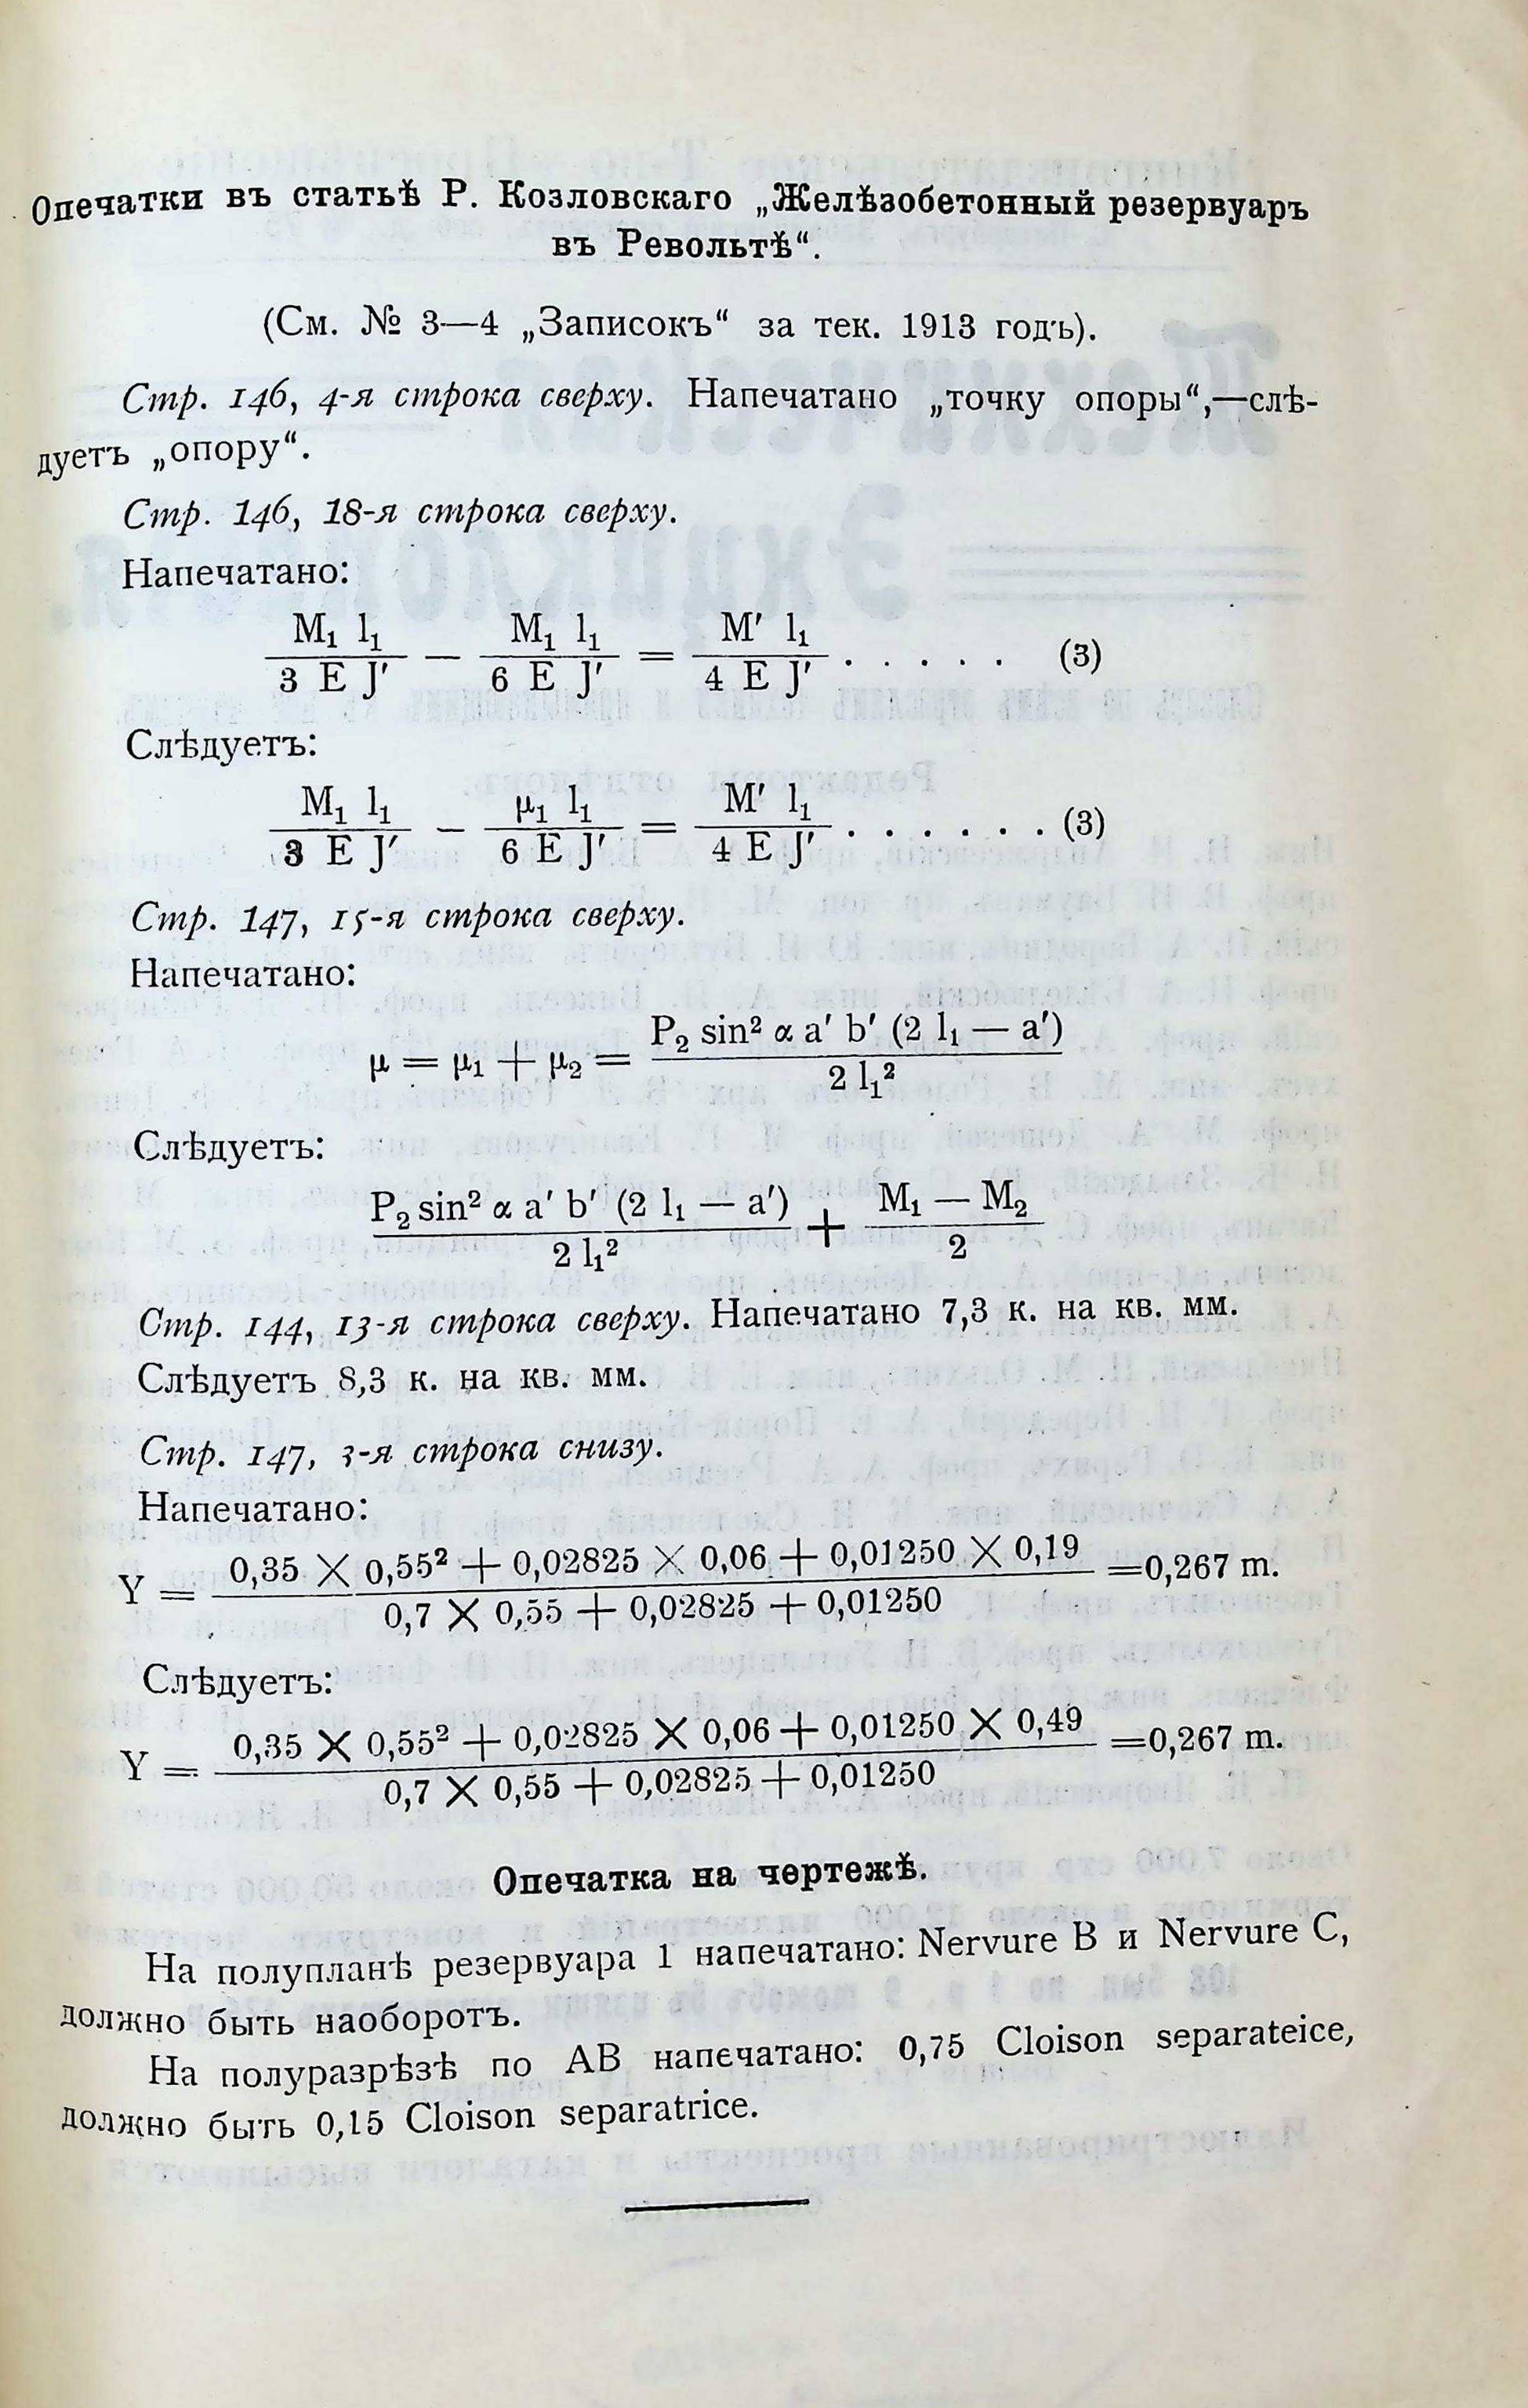 Опечатки въ статьѣ Р. Козловскаго „Желѣзобетонный резервуаръ
въ Револьтѣ“.
(См. № 3—4 „Записокъ“ за тек. 1913 годъ).
Стр. 146, 4-я строка сверху. Напечатано „точку опоры“,—слѣ-
дуетъ „опору“.
Стр. 146, 18-я строка сверху.
Напечатано:
M₁ l₁ / 3 E J′ — M₁ l₁ / 6 E J′ = M′ l₁ / 4 E J′ . . . . . (3)
Слѣдуетъ:
M₁ l₁ / 3 E J′ — μ₁ l₁ / 6 E J′ = M′ l₁ / 4 E J′ . . . . . . (3)
Стр. 147, 15-я строка сверху.
Напечатано:
μ = μ₁ + μ₂ = P₂ sin² α a′ b′ (2 l₁ — a′) / 2 l₁²
Слѣдуетъ:
P₂ sin² α a′ b′ (2 l₁ — a′) / 2 l₁² + M₁ — M₂ / 2
Стр. 144, 13-я строка сверху. Напечатано 7,3 к. на кв. мм.
Слѣдуетъ 8,3 к. на кв. мм.
Стр. 147, 3-я строка снизу.
Напечатано:
Y = 0,35 × 0,55² + 0,02825 × 0,06 + 0,01250 × 0,19 / 0,7 × 0,55 + 0,02825 + 0,01250 =0,267 m.
Слѣдуетъ:
Y = 0,35 × 0,55² + 0,02825 × 0,06 + 0,01250 × 0,49 / 0,7 × 0,55 + 0,02825 + 0,01250 =0,267 m.
Опечатка на чертежѣ.
На полупланѣ резервуара 1 напечатано: Nervure B и Nervure C,
должно быть наоборотъ.
На полуразрѣзѣ по AB напечатано: 0,75 Cloison separateice,
должно быть 0,15 Cloison separatrice.